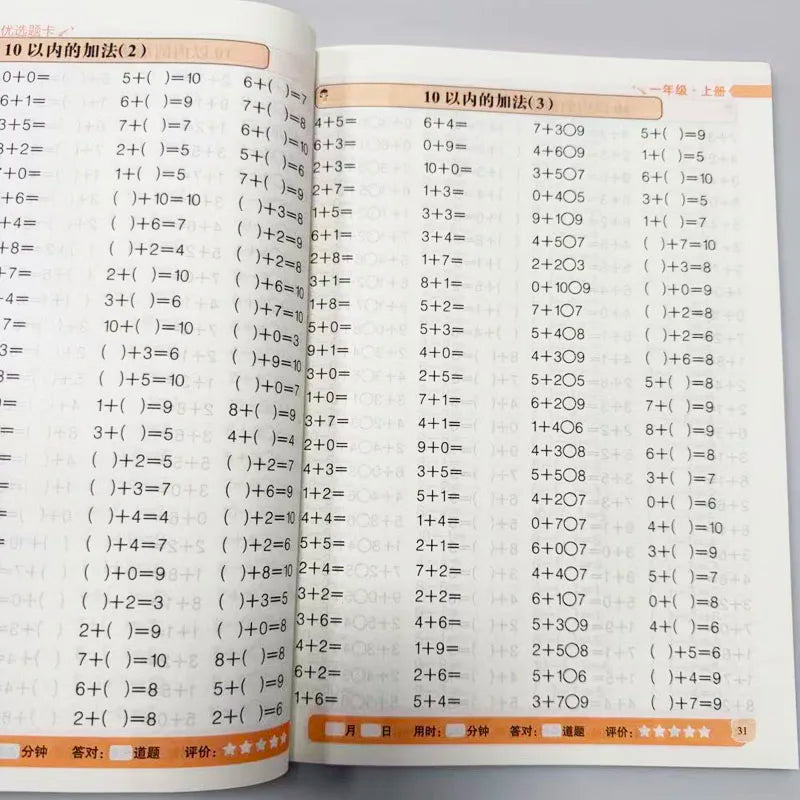 优选题卡
10以内的加法(2)
0+0= 5+( )=10 6+( )=7
6+1= 6+( )=9 7+( )=8
3+5= 7+( )=7 6+( )=10
8+2= 2+( )=5 5+( )=6
+0= 1+( )=5 7+( )=9
+6= ( )+10=10 ( )+3=8
+4= ( )+6=7 ( )+2=9
+8= ( )+2=4 ( )+2=8
+7= 2+( )=10 ( )+6=10
+4= 3+( )=6 ( )+7=10
7= 10+( )=10 ( )+0=3
3= ( )+3=6 ( )+9=10
= ( )+5=10 ( )+0=7
= 1+( )=9 8+( )=9
= 3+( )=5 4+( )=4
= ( )+2=5 ( )+2=7
( )+3=7 ( )+6=9
( )+4=4 ( )+2=10
( )+4=7 ( )+2=6
( )+0=9 ( )+8=10
( )+2=3 ( )+3=5
2+( )=9 ( )+0=8
7+( )=10 8+( )=8
6+( )=8 5+( )=9
2+( )=8 2+( )=6
分钟 答对: 道题 评价:
一年级·上册
10以内的加法(3)
4+5= 6+4= 7+3○9 5+( )=9
6+3= 0+9= 4+6○9 1+( )=5
2+3= 10+0= 3+5○7 6+( )=10
2+7= 1+3= 0+4○5 3+( )=5
1+5= 3+3= 9+1○9 1+( )=7
6+1= 3+4= 4+5○7 ( )+7=10
2+8= 1+7= 2+2○3 ( )+3=8
3+1= 8+1= 0+10○9 ( )+0=9
1+8= 5+2= 7+1○7 ( )+2=8
5+0= 5+3= 5+4○8 ( )+2=6
9+1= 4+0= 4+3○9 ( )+6=8
3+0= 2+5= 5+2○5 5+( )=8
1+0= 7+1= 6+2○9 7+( )=9
3+7= 4+1= 1+4○6 8+( )=9
2+0= 9+0= 4+3○8 6+( )=8
4+3= 3+5= 5+5○8 3+( )=7
1+2= 5+1= 4+2○7 0+( )=6
4+4= 1+4= 0+7○7 4+( )=10
5+5= 2+1= 6+0○7 3+( )=9
2+4= 7+2= 4+4○7 5+( )=7
3+2= 2+2= 6+1○7 0+( )=8
3+6= 4+6= 5+3○9 4+( )=6
4+2= 1+9= 2+5○8 ( )+5=6
6+2= 2+6= 5+1○6 ( )+4=9
1+6= 5+4= 3+7○9 ( )+7=9
月 日 用时: 分钟 答对: 道题 评价:
31